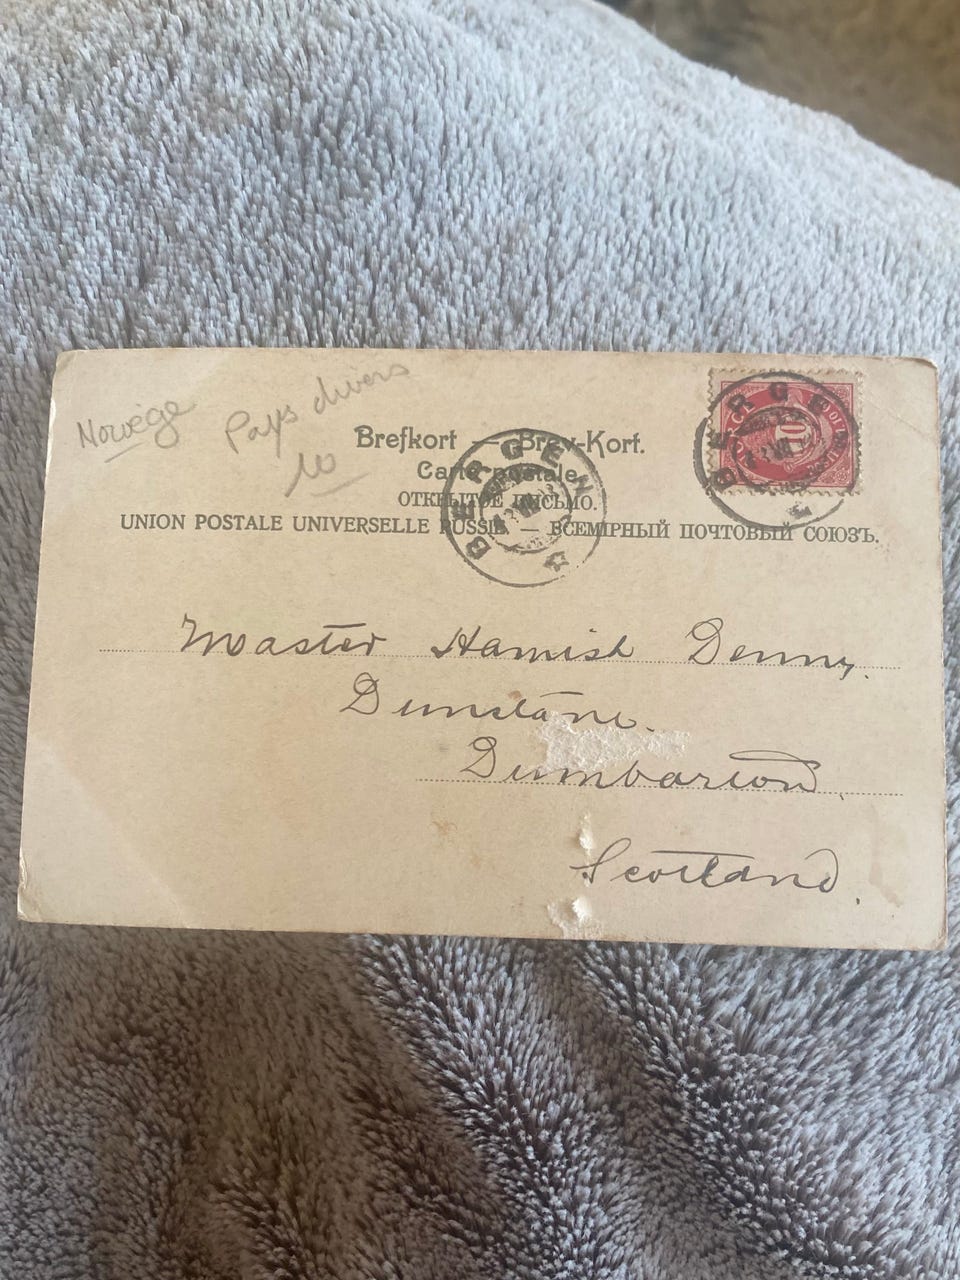 Norvège
Pays divers
10
Brefkort — Brev-Kort.
Carte postale
ОТКРЫТОЕ ПИСЬМО.
UNION POSTALE UNIVERSELLE RUSSIE — ВСЕМІРНЫЙ ПОЧТОВЫЙ СОЮЗЪ.
BERGEN
BERGEN
10
Master Hamish Denny.
Dunstane.
Dumbarton.
Scotland.